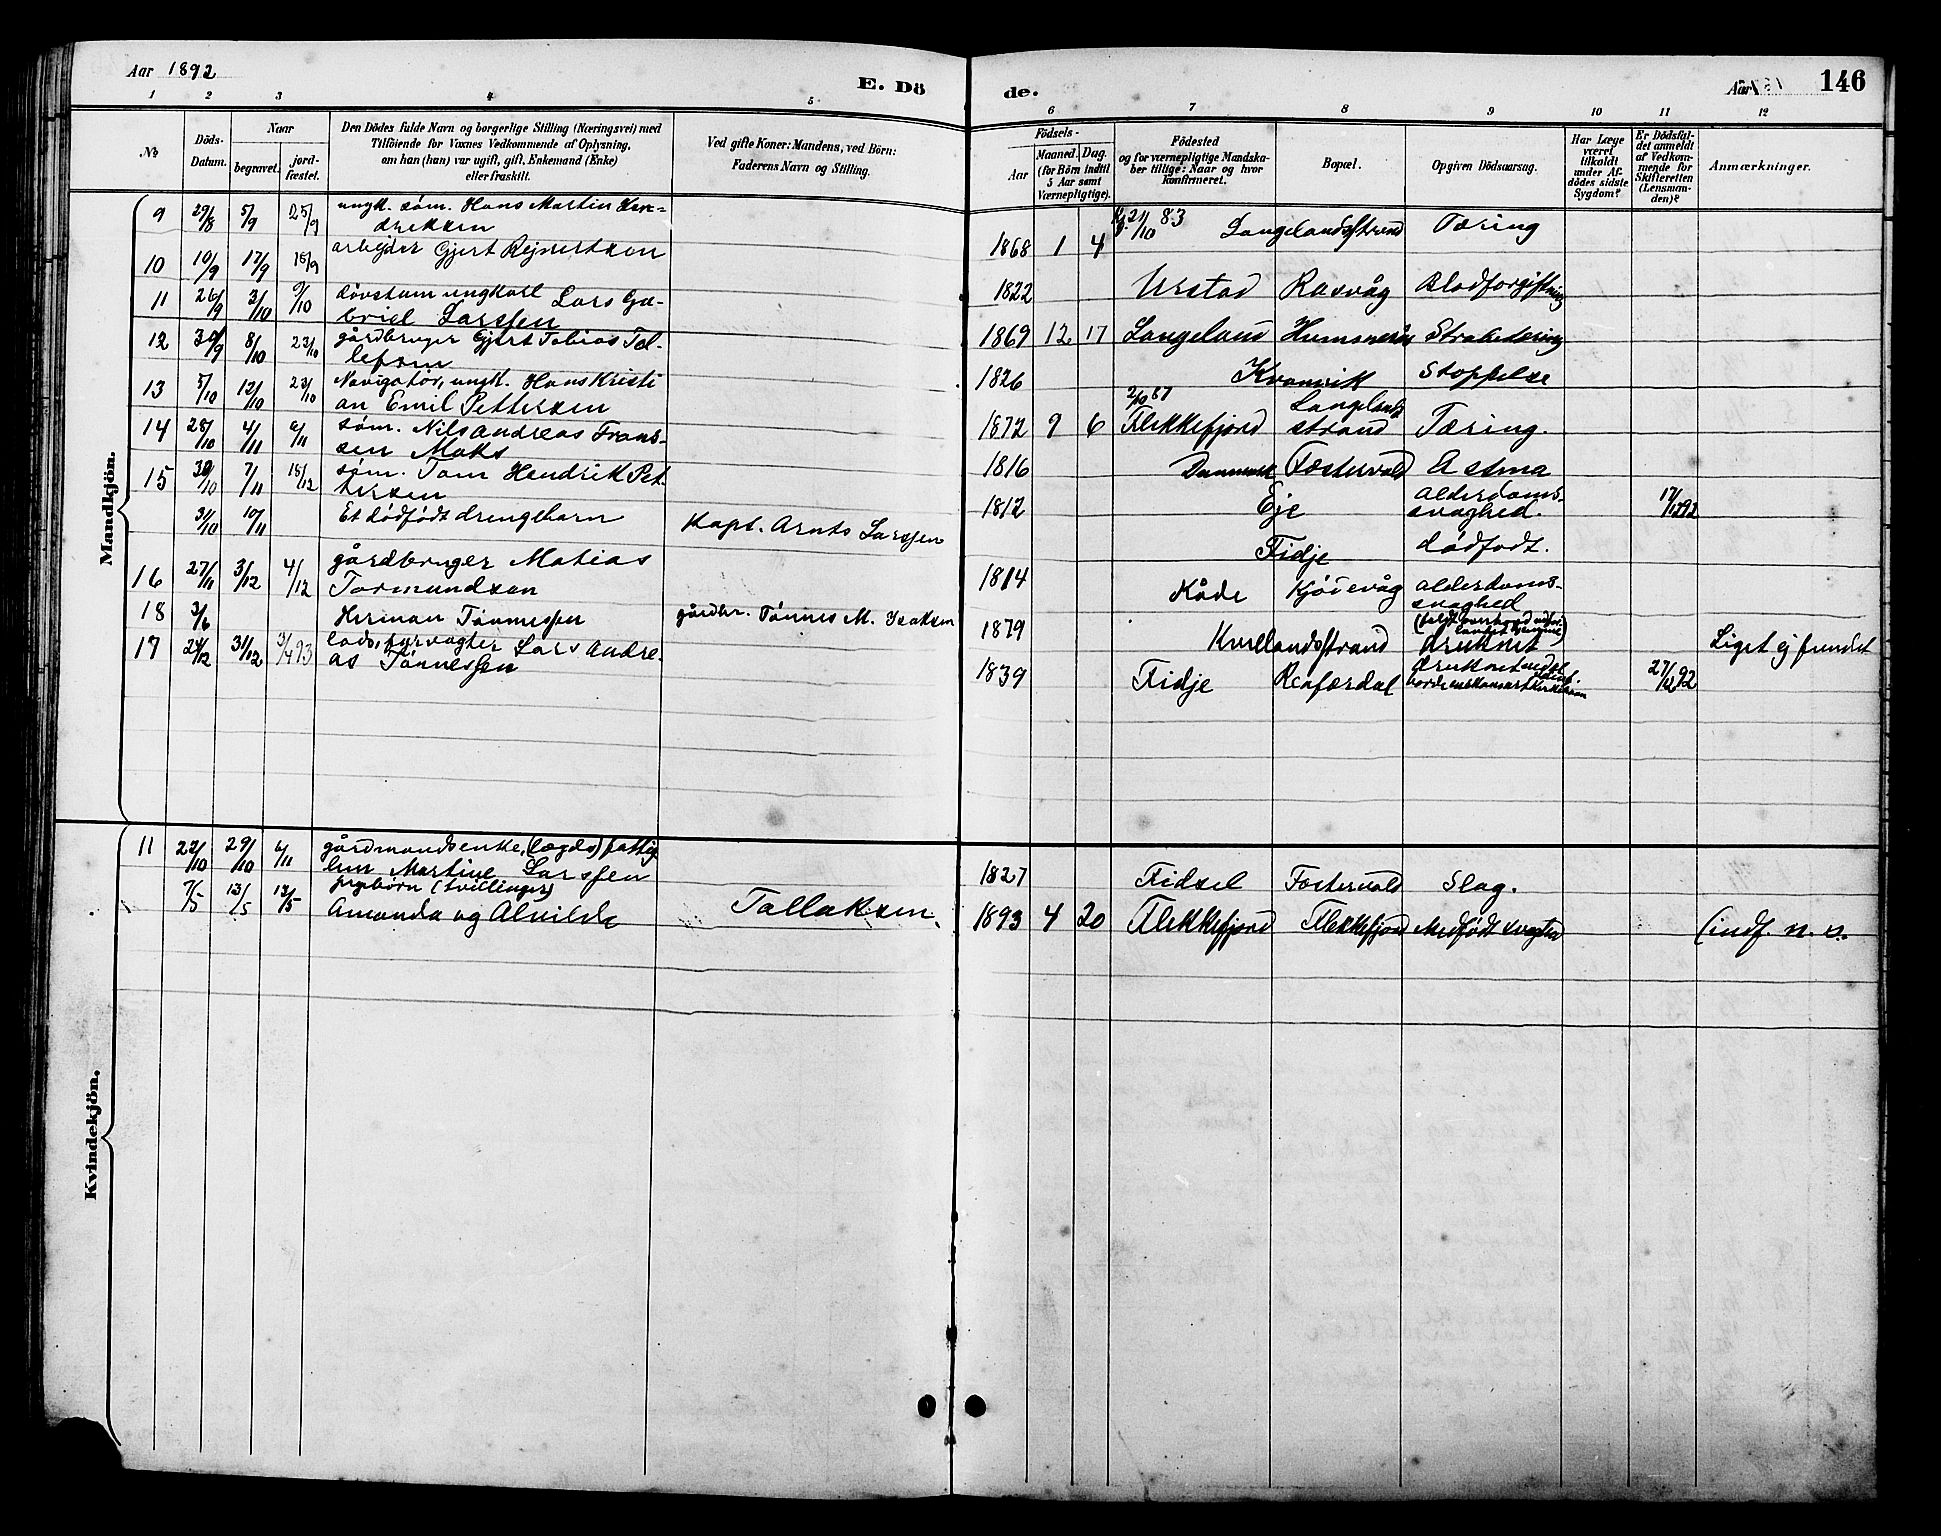 Aar 1892
E. Dö de.
Aar 146
1 2 3 4 5 6 7 8 9 10 11 12
No
Döds-Datum.
Naar
begravet.
jord-fæstet.
Den Dödes fulde Navn og borgerlige Stilling (Næringsvei) med
Tilföiende for Voxnes Vedkommende af Oplysning,
om han (hun) var ugift, gift, Enkemand (Enke)
eller fraskilt.
Ved gifte Koner: Mandens, ved Börn:
Faderens Navn og Stilling.
Födsels-
Aar
Maaned. Dag.
(for Börn indtil
5 Aar samt
Værnepligtige).
Födested
og for værnepligtige Mandska-
ber tillige: Naar og hvor
konfirmeret.
Bopæl.
Opgiven Dödsaarsag.
Har Læge
været
tilkaldt
under Af-
dödes sidste
Sygdom?
Er Dödsfal-
det anmeldt
af Vedkom-
mende for
Skifteretten
(Lensman-
den)?
Anmærkninger.
Mandkjön.
9 29/8 5/9 25/9 ungk. søm. Hans Martin Hen-
driksen 1868 1 4 21/10 83 Langelandsstrand Tæring
10 10/9 17/9 18/9 arbejder Gjert Rejnertsen
1822 Urstad Rasvåg Blodforgiftning
11 26/9 3/10 9/10 døvstum ungkarl Lars Ga-
briel Larssen 1869 12 17 Langeland
12 30/9 8/10 23/10 gårdbruger Gjert Tobias Tol-
lefsen 1826 Kvanvik Stoppelse
13 5/10 12/10 23/10 Navigatør, ungk. Hans Kristi
an Emil Pettersen 1872 9 6 Flekkefjord Langelands
strand Tæring.
14 28/10 4/11 6/11 søm. Nils Andreas Frans-
sen Maks 1816 Danmark Fostervold Astma
15 30/10 7/11 18/12 søm. Tom Hendrik Pet-
tersen 1812 Eje alderdoms-
svaghed. 17/12 92
31/10 10/11 Et dødfødt drengebarn Kapt. Arnts Larssen
Fidje dødfødt.
16 27/11 3/12 4/12 gårdbruger Matias
Tormundsen 1814 Kåde Kjødevåg alderdoms-
svaghed
18 3/6 Herman Tønnessen gårdbr. Tønnes M. Isaksen
1879 Kvellandsstrand druknet Liget ej fundet
17 24/12 31/12 3/4 93 lods, fyrvogter Lars Andre-
as Tønnessen 1839 Fidje druknet 27/12 92
Kvindekjön.
11 22/10 29/10 6/11 gårdmandsenke, (lægds) fattig
lem Martine Larssen 1827 Fidsel Fostervold Slag.
7/5 13/5 13/5 pigebørn (tvillinger)
Amanda og Alvilde Tallaksen 1893 4 20 Flekkefjord Flekkefjord Medfødt svaghed (indf. n. s.